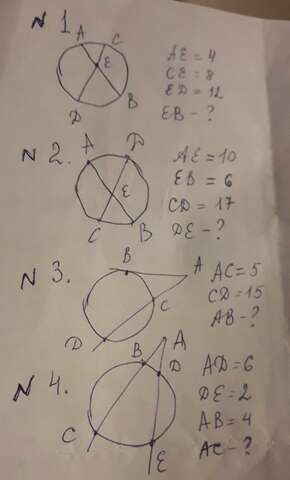 N 1
A C
E
D B
AE = 4
CE = 8
ED = 12
EB - ?
N 2.
A D
E
C B
AE = 10
EB = 6
CD = 17
DE - ?
N 3.
B A
C
D
AC = 5
CD = 15
AB - ?
N 4.
A
B D
C
E
AD = 6
DE = 2
AB = 4
AC - ?